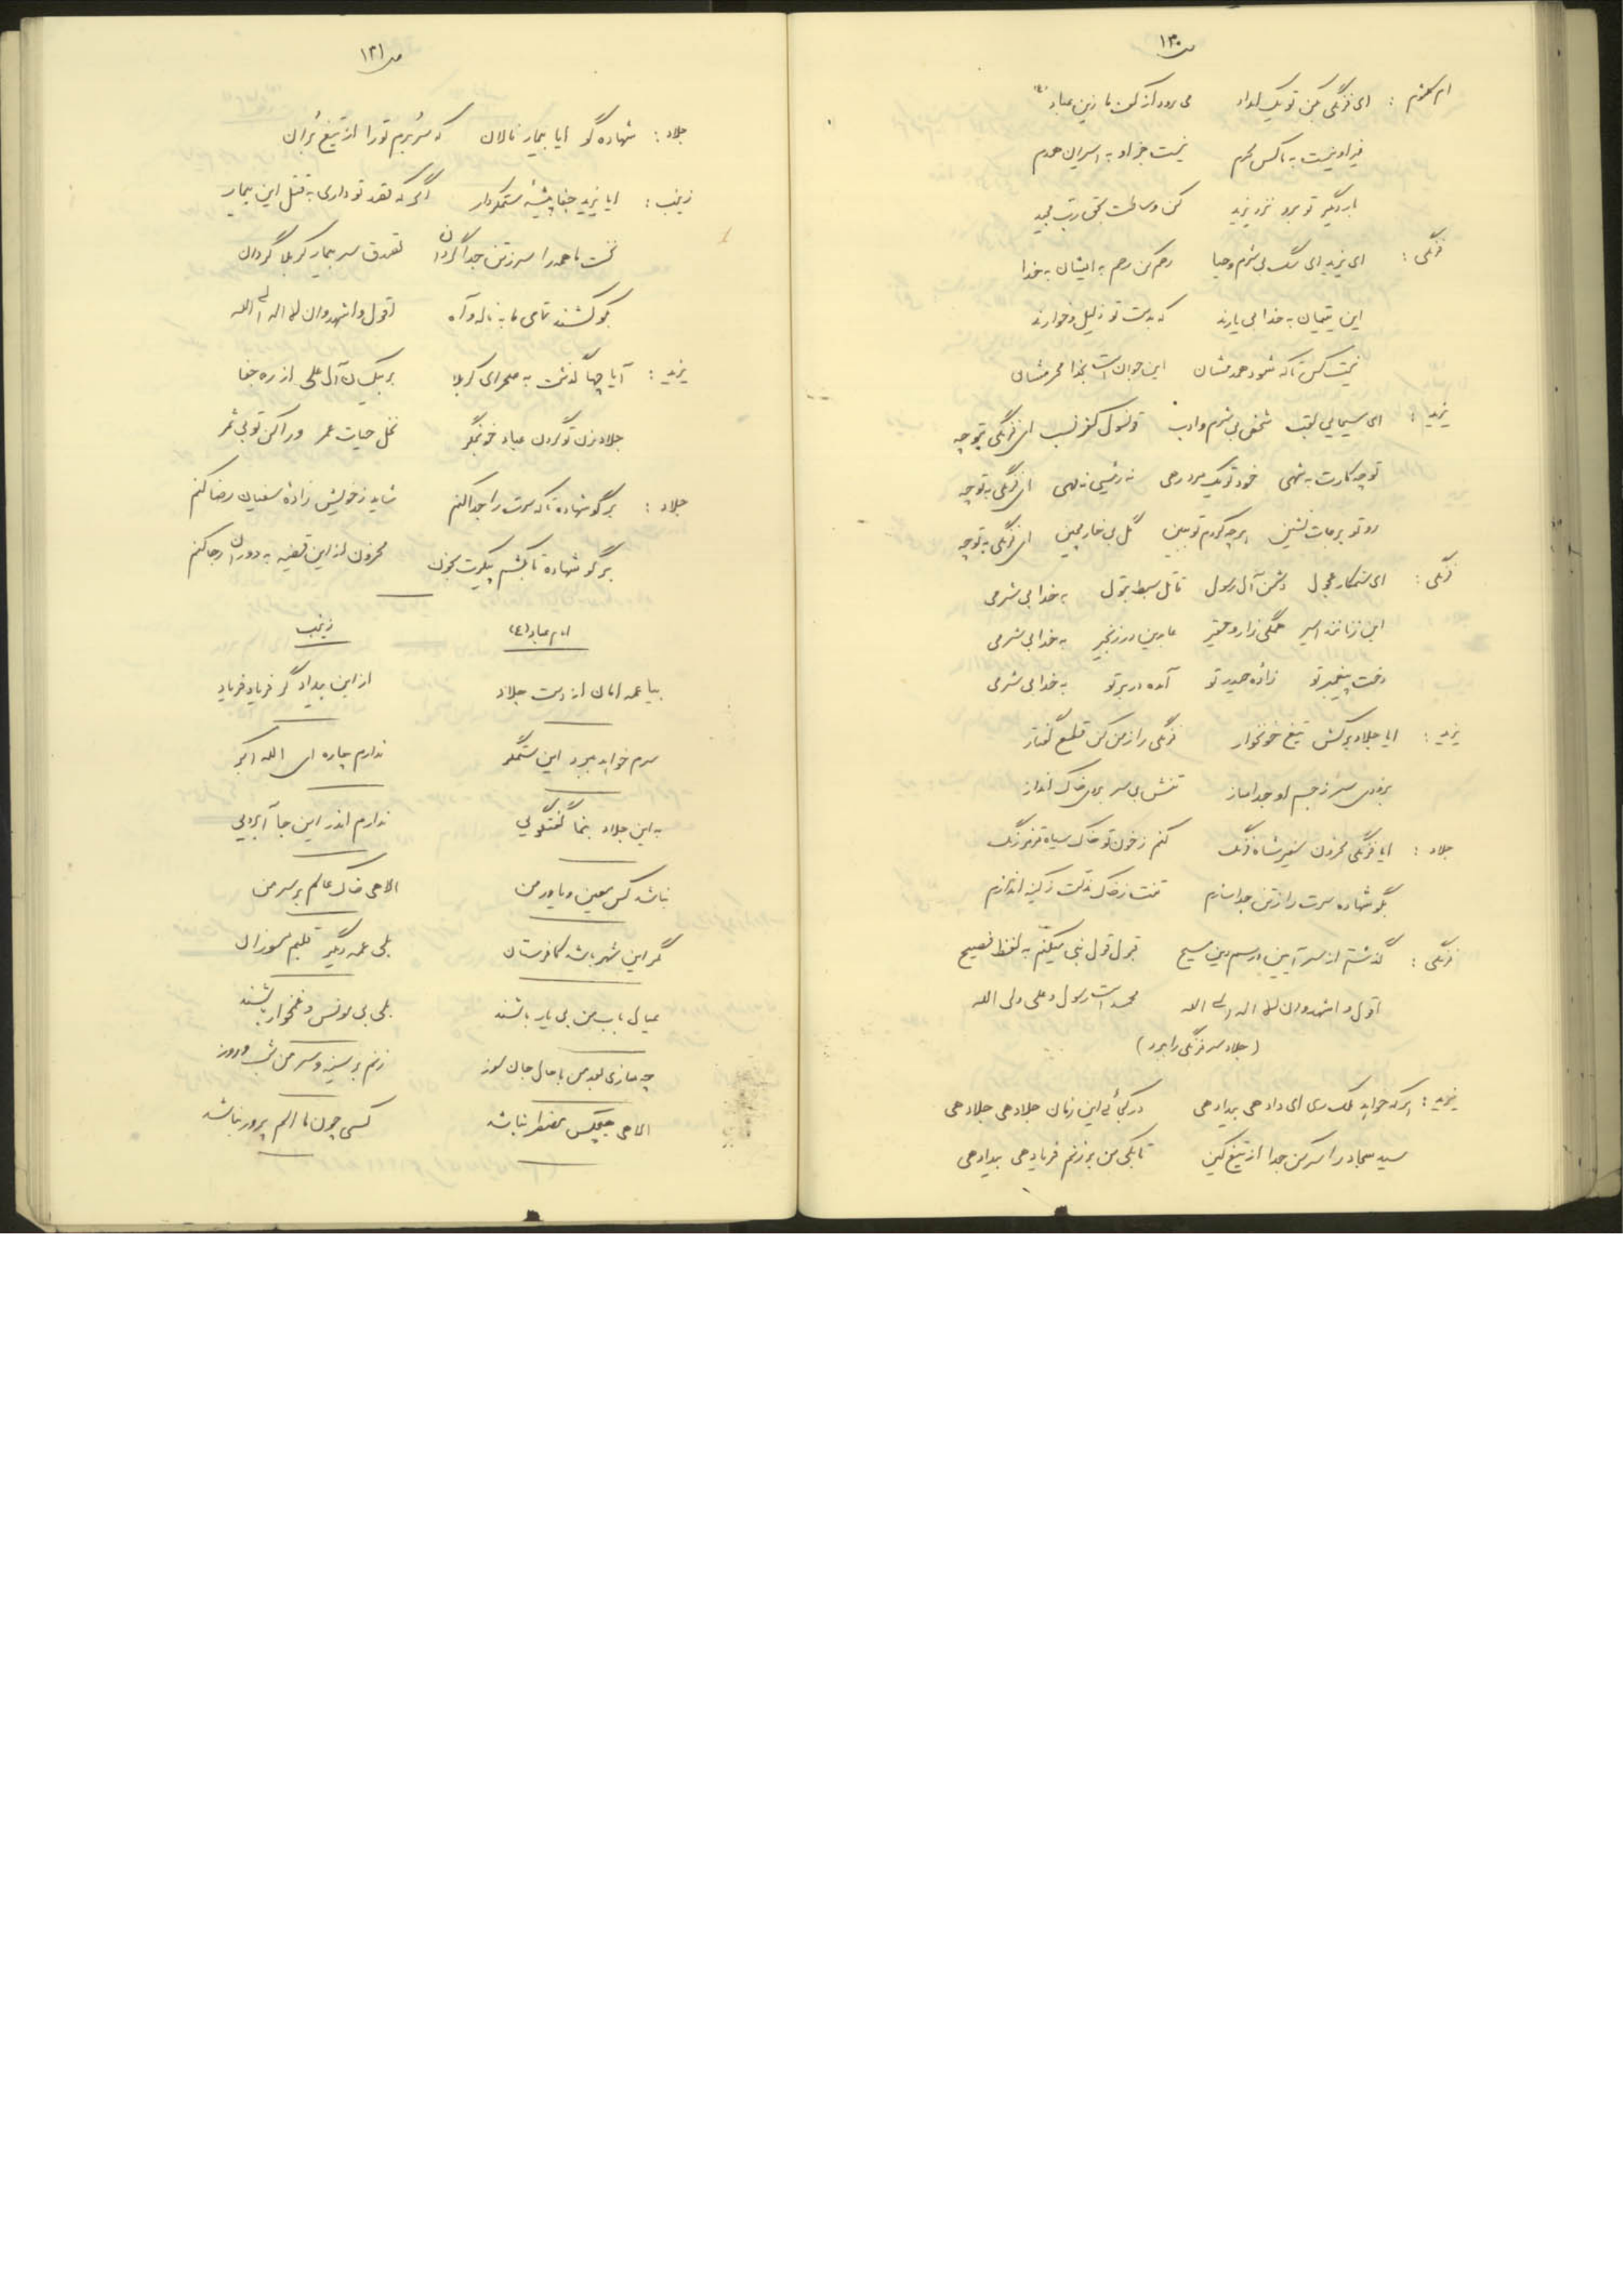 ص ۱۳۰
ام کلثوم : ای فرنگی کن تو یک امداد می رود از کف ما زین عباد
نیست به ما کس محرم نیست جز او به اسیران همدم
بار دیگر تو برو نزد یزید کن وساطت بحق رب مجید
فرنگی : ای یزید ای سگ بی شرم و حیا رحم کن رحم به ایشان به خدا
این یتیمان به خدا بی یارند که بدست تو ذلیل و خوارند
نیست کس تا که شود همدمشان این جوان است بخدا محرمشان
یزید : ای مسیحایی لقب شخص بی شرم و ادب کفر نسب ای فرنگی بتو چه
تو چه کارت به شهی خود تو یک مرد رهی ای فرنگی به تو چه
رو تو بر جات نشین هر چه کردم تو ببین گل بی خار مچین ای فرنگی به تو چه
فرنگی : ای ستمکار عجول دشمن آل رسول قاتل سبط بتول به خدا بی شرمی
این زنانند اسیر همگی زار و حقیر عابدین در زنجیر به خدا بی شرمی
دخت پیغمبر تو زاده حیدر تو آمده در بر تو به خدا بی شرمی
یزید : ایا جلاد برکش تیغ خونخوار فرنگی را ز من کن قطع گفتار
بزودی سر ز جسم او جدا ساز تنش بی سر بروی خاک انداز
جلاد : ایا فرنگی محزون سفیر شاه فرنگ کنم ز خون تو خاک سیاه قرمز رنگ
بگو شهاده سرت را ز تن جدا سازم تنت ز خاک مذلت ز کینه اندازم
فرنگی : گذشتم از سر آیین و رسم دین مسیح قبول قول نبی میکنم به لفظ فصیح
اقول و اشهد و ان لا اله الی الله محمد است رسول و علی ولی الله
( جلاد سر فرنگی را ببرد )
یزید : هر که خواهد ملک ری ای داد هی بیداد هی در کجائی این زمان جلاد هی جلاد هی
سید سجاد را سر کن جدا از تیغ کین تا بکی من بر زنم فریاد هی بیداد هی
ص ۱۳۱
جلاد : شهاده گو ایا بیمار نالان که سر برم تو را از تیغ بران
زینب : ایا یزید جفا پیشه ستمکردار اگر که قصد تو داری به قتل این بیمار
نخست ما همه را سر ز تن جدا گردان تصدق سر بیمار کربلا گردان
بگو کشند تمامی ما به ناله و آه اقول و اشهد و ان لا اله الی الله
یزید : آیا چها گذشت به صحرای کربلا بر بیکسان آل علی از ره جفا
جلاد زن تو گردن عباد خونجگر نخل حیات عمر ورا کن تو بی ثمر
جلاد : بر گو شهاده تا که سرت را جدا کنم شاید ز خویش زاده سفیان رضا کنم
بر گو شهاده تا بکشم پیکرت بخون محزون از این قضیه به دوران رجا کنم
امام عباد (ع) زینب
بیا عمه امان از دست جلاد از این بیدادگر فریاد فریاد
سرم خواهد ببرد این ستمگر ندارم چاره ای الله اکبر
به این جلاد بنما گفتگویی ندارم اندر این جا آبرویی
نباشد کس معین و یاور من الاهی خاک عالم بر سر من
مگر این شهر باشد کافرستان بلی عمه دگر قلبم مسوزان
عیال باب من بی یار باشند بلی بی مونس و غمخوار باشند
چه سازی بعد من با حال جان سوز زنم بر سینه و سر من شب و روز
الاهی هیچکس مضطر نباشد کسی چون ما الم پرور نباشد